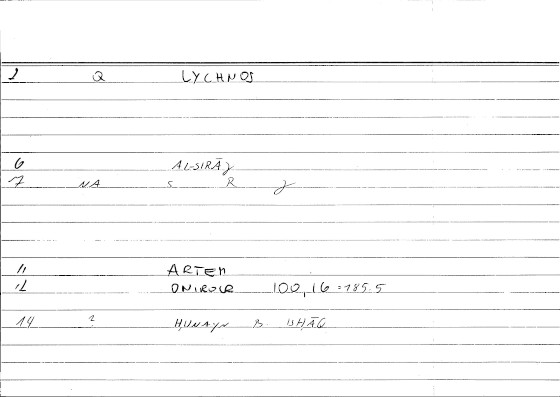 1 Q LYCHNOS
6 AL-SIRĀǦ
7 NA S R Ǧ
11 ARTEM
12 ONIROCR 100,16 = 185.5
14 ? ḤUNAYN B. ISḤĀQ